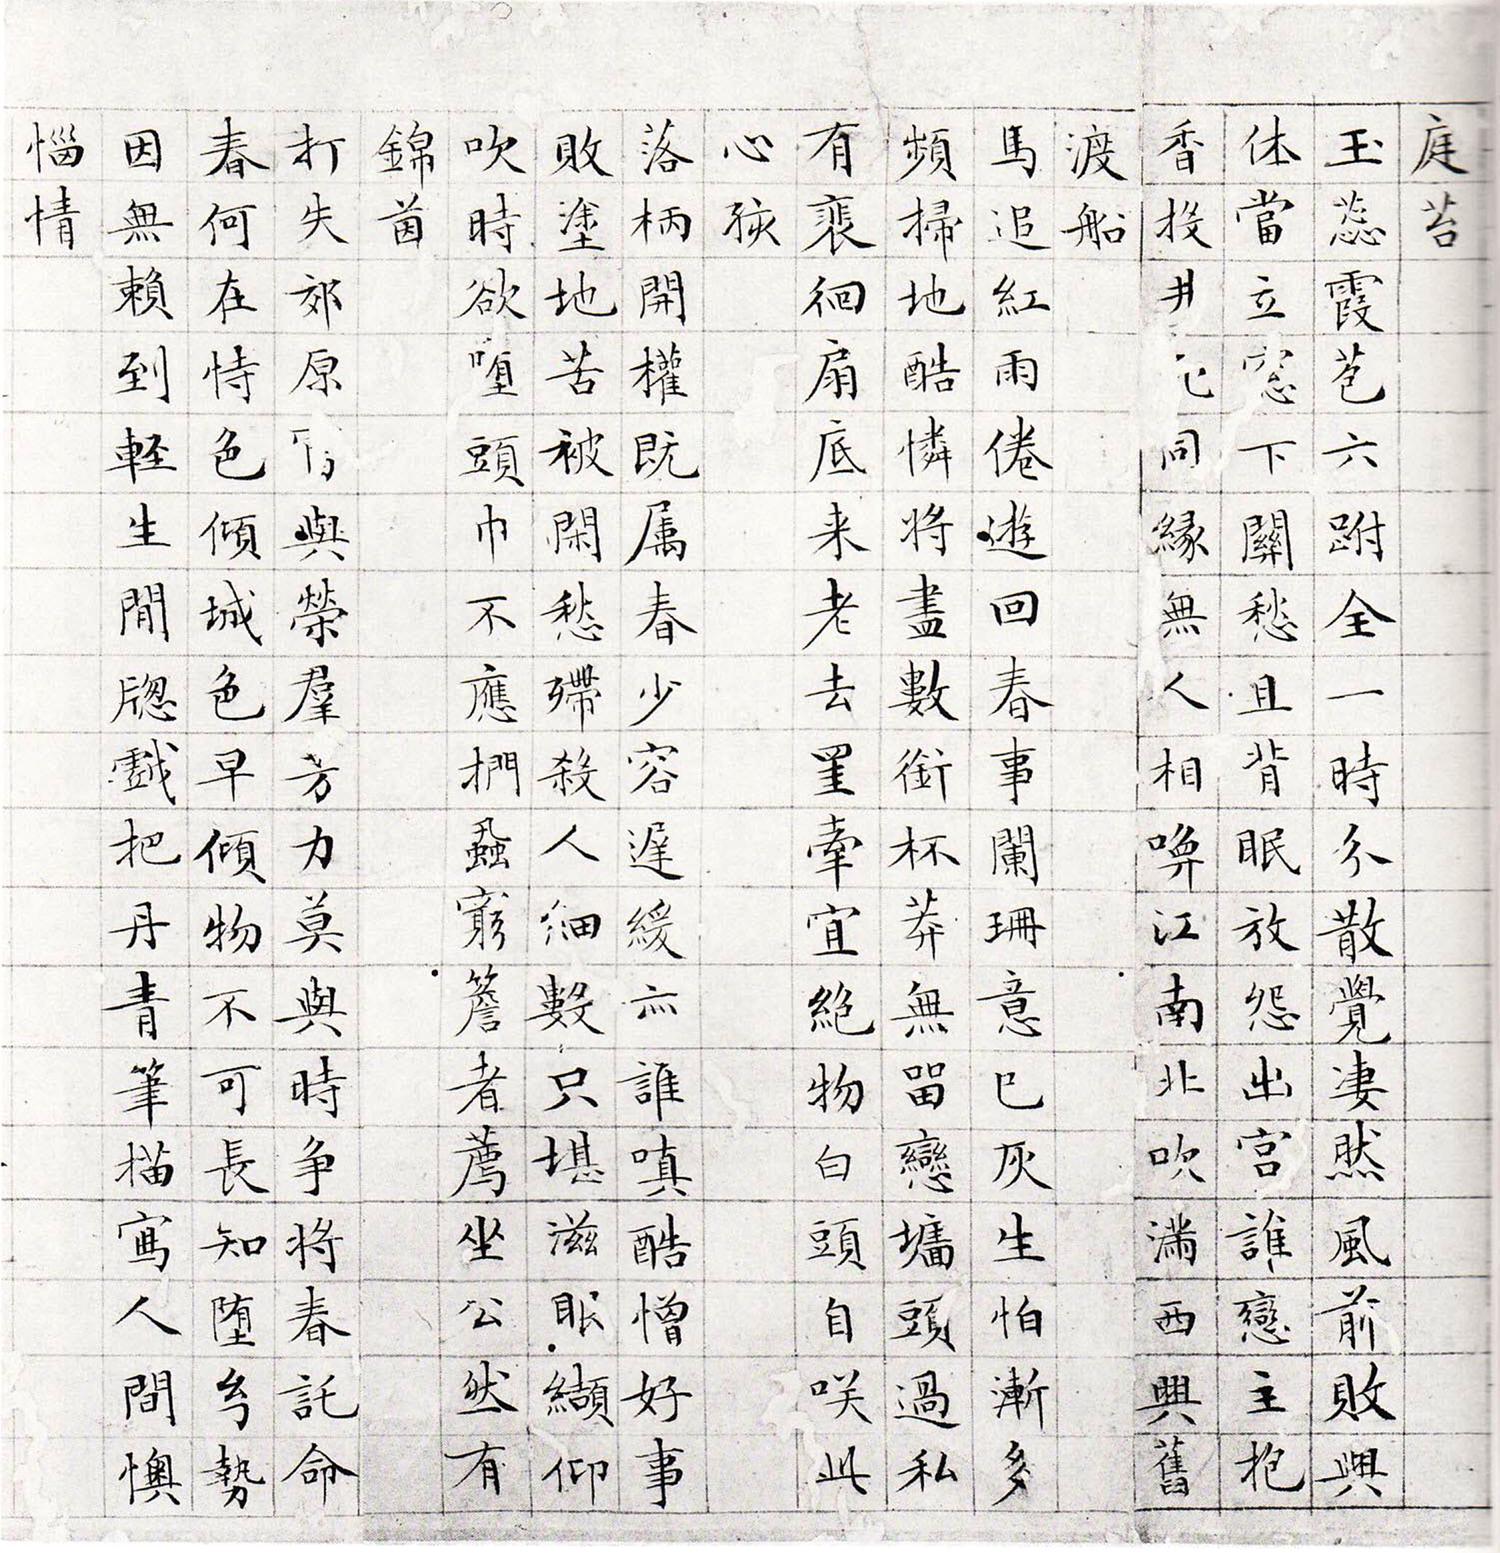 庭苔
玉蕊霞苞六跗全一時分散覺凄然風前敗興
休當立窓下關愁且背眠放怨出宫誰戀主抱
香投井死同緣無人相喚江南北吹滿西興舊
渡船
馬追紅雨倦遊回春事闌珊意已灰生怕漸多
頻掃地酷憐將盡數銜杯莽無留戀墻頭過私
有裵徊扇底来老去罣牽宜絶物白頭自咲此
心孩
落柄開權既属春少容遲緩亦誰嗔酷憎好事
敗塗地苦被閑愁殢殺人細數只堪滋眼纈仰
吹時欲堕頭巾不應捫蝨窮簷者薦坐公然有
錦茵
打失郊原與榮羣芳力莫與時争將春託命
春何在恃色傾城色早傾物不可長知堕兮勢
因無賴到軽生閒牎戲把丹青筆描寫人間懊
惱情